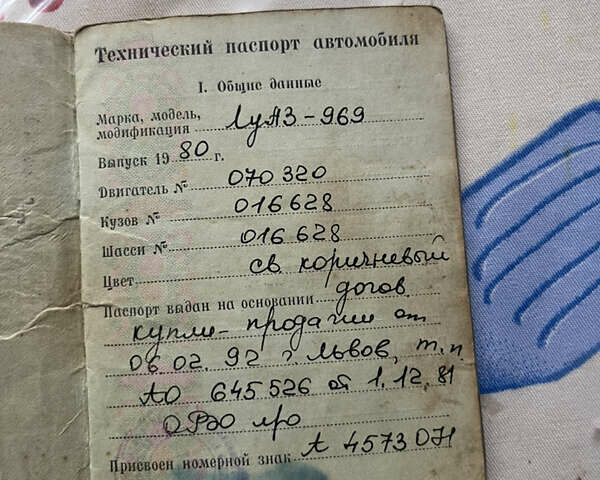 Технический паспорт автомобиля
I. Общие данные
Марка, модель,
модификация ЛуАЗ-969
Выпуск 19 80 г.
Двигатель № 070320
Кузов № 016628
Шасси № 016628
Цвет св коричневый
Паспорт выдан на основании догов.
купли-продажи от
06.02.92 г. Львов, т.п.
АО 645526 от 1.12.81
Присвоен номерной знак А 4573 ОН